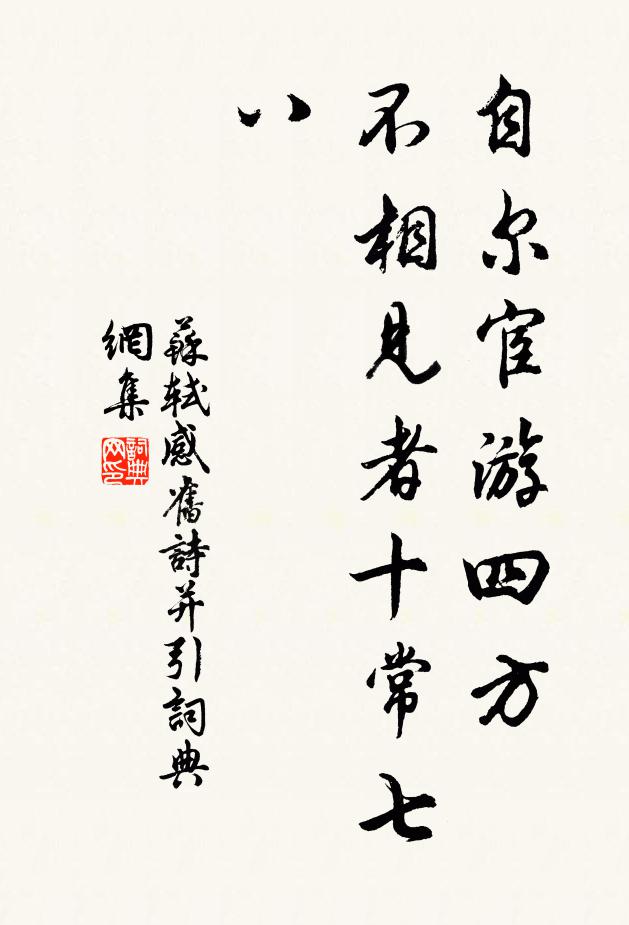 自尔宦游四方
不相見者十常七
八
蘇軾感舊詩并引詞典
網集
詞典
网印